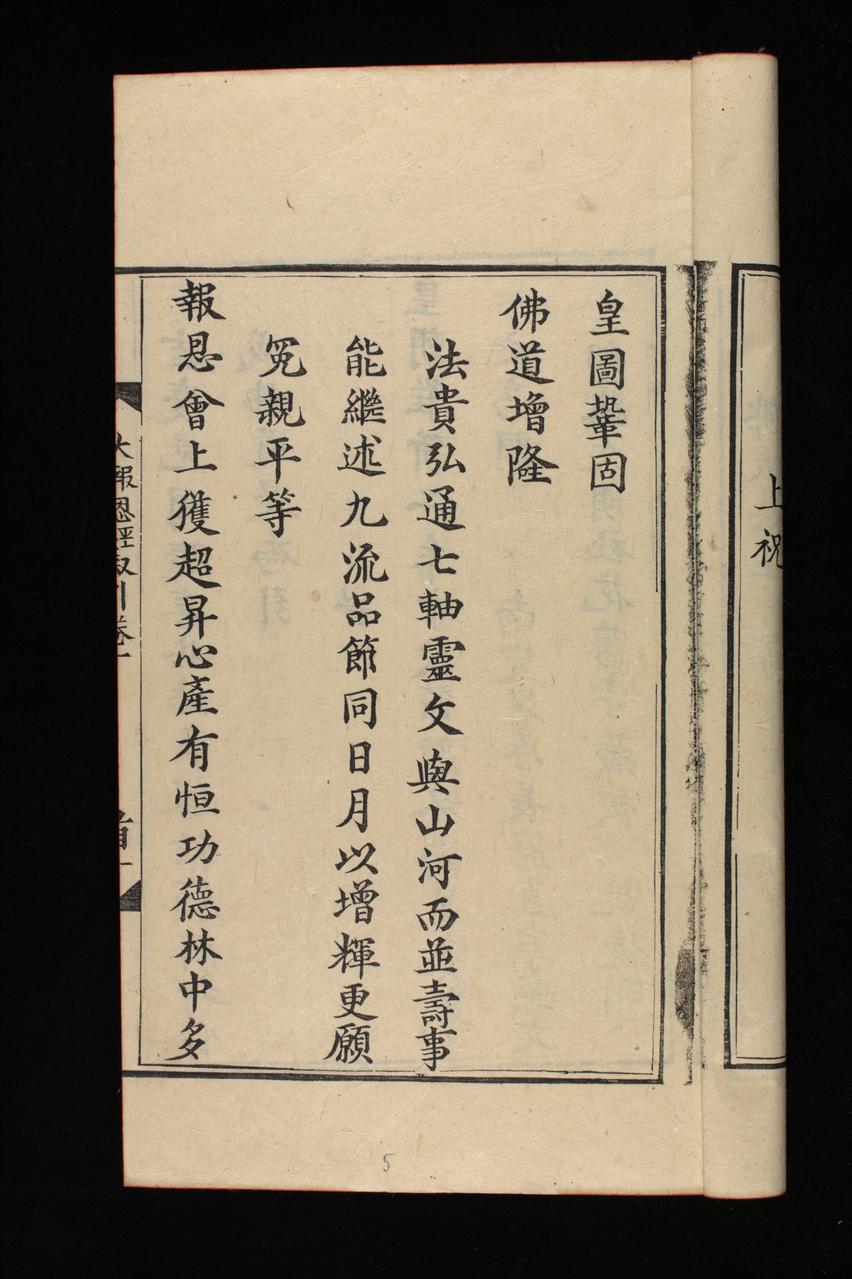 上祝
皇圖鞏固
佛道增隆
法貴弘通七軸靈文與山河而並壽事
能繼述九流品節同日月以增輝更願
冤親平等
報恩會上獲超昇心產有恒功德林中多
大報恩經敘引卷一
首一
5